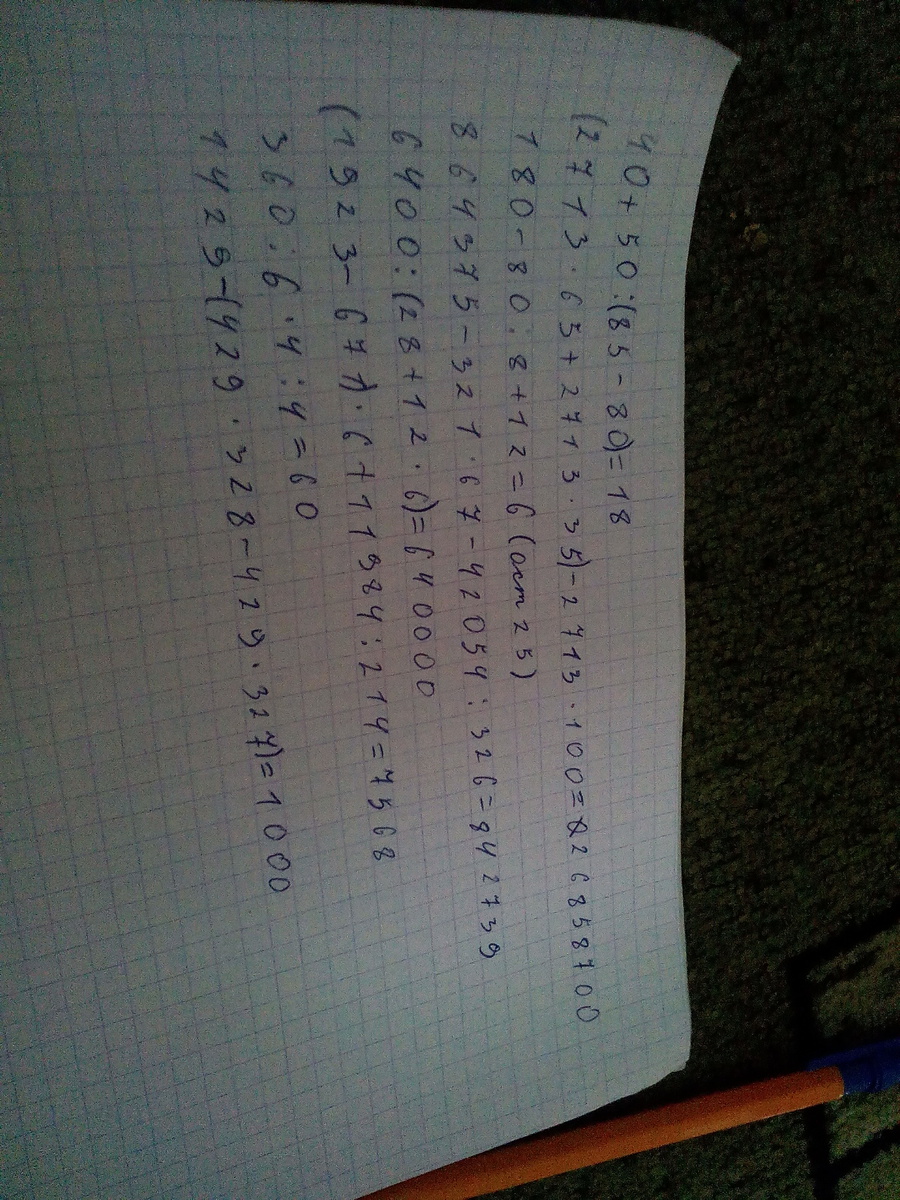 40+50:(85-80)=18
(2713·65+2713·35)-2713·100=226858700
180-80:8+12=6(ост25)
864375-321·67-42054:326=842739
6400:(28+12·6)=640000
(1923-671)·6+11984:214=7568
360:6·4:4=60
1429-(429·328-429·327)=1000